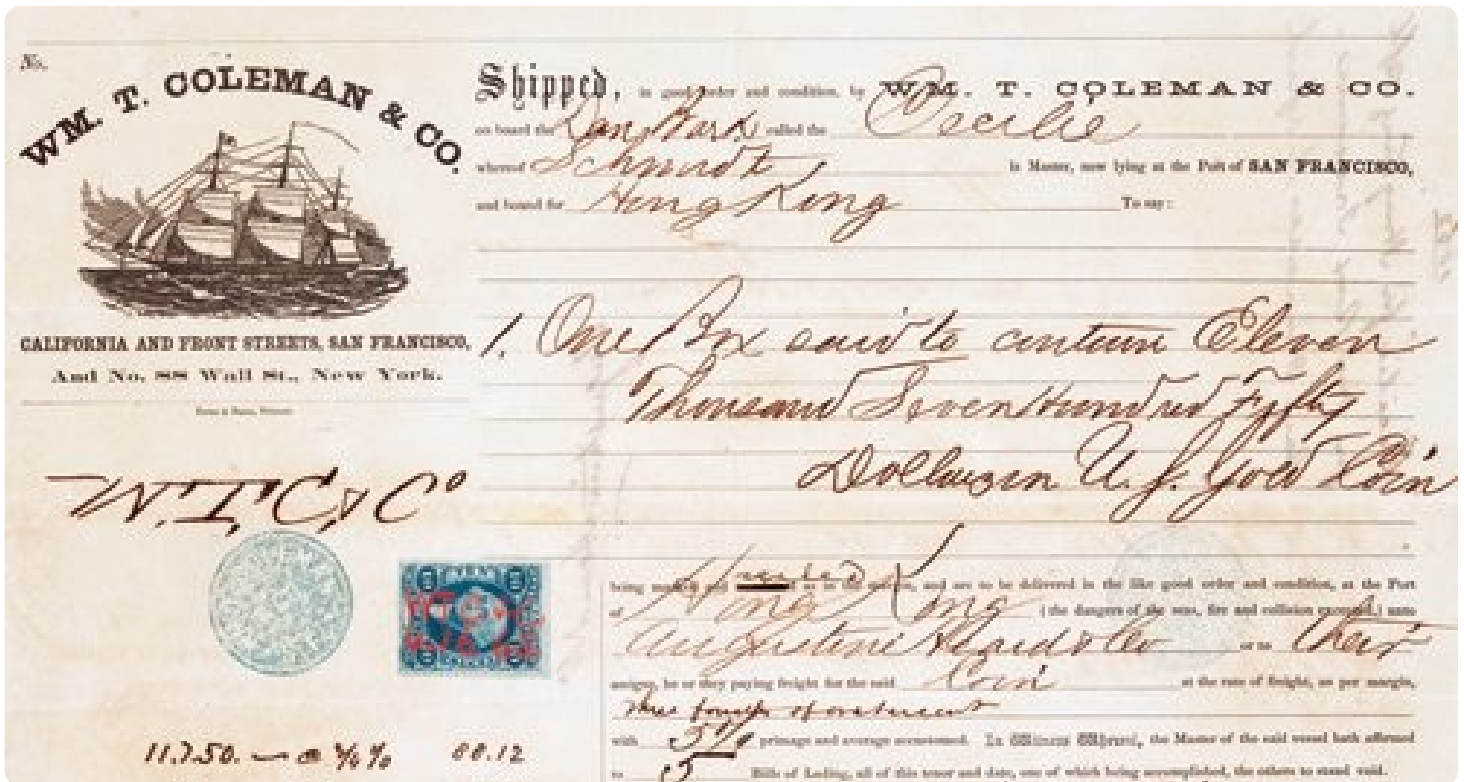 No.
WM. T. COLEMAN & CO.
CALIFORNIA AND FRONT STREETS, SAN FRANCISCO,
And No. 88 Wall St., New York.
Shipped, in good order and condition, by WM. T. COLEMAN & CO.
on board the Dan. Bark called the Cecilie
whereof Schmidt is Master, now lying at the Port of SAN FRANCISCO,
and bound for Hong Kong To say:
1. One Box said to contain Eleven
Thousand Seven Hundred Fifty
Dollars in U.S. Gold Coin
W.T.C & Co
being marked and as in the margin, and are to be delivered in the like good order and condition, at the Port
of Hong Kong (the dangers of the seas, fire and collision excepted,) unto
Augustine Heard & Co or to their
assigns, he or they paying freight for the said Coin at the rate of freight, as per margin,
three fourths of one per cent
with 5% primage and average accustomed. In Witness Whereof, the Master of the said vessel hath affirmed
to 5 Bills of Lading, all of this tenor and date, one of which being accomplished, the others to stand void.
11.750. @ ¾% 88.12